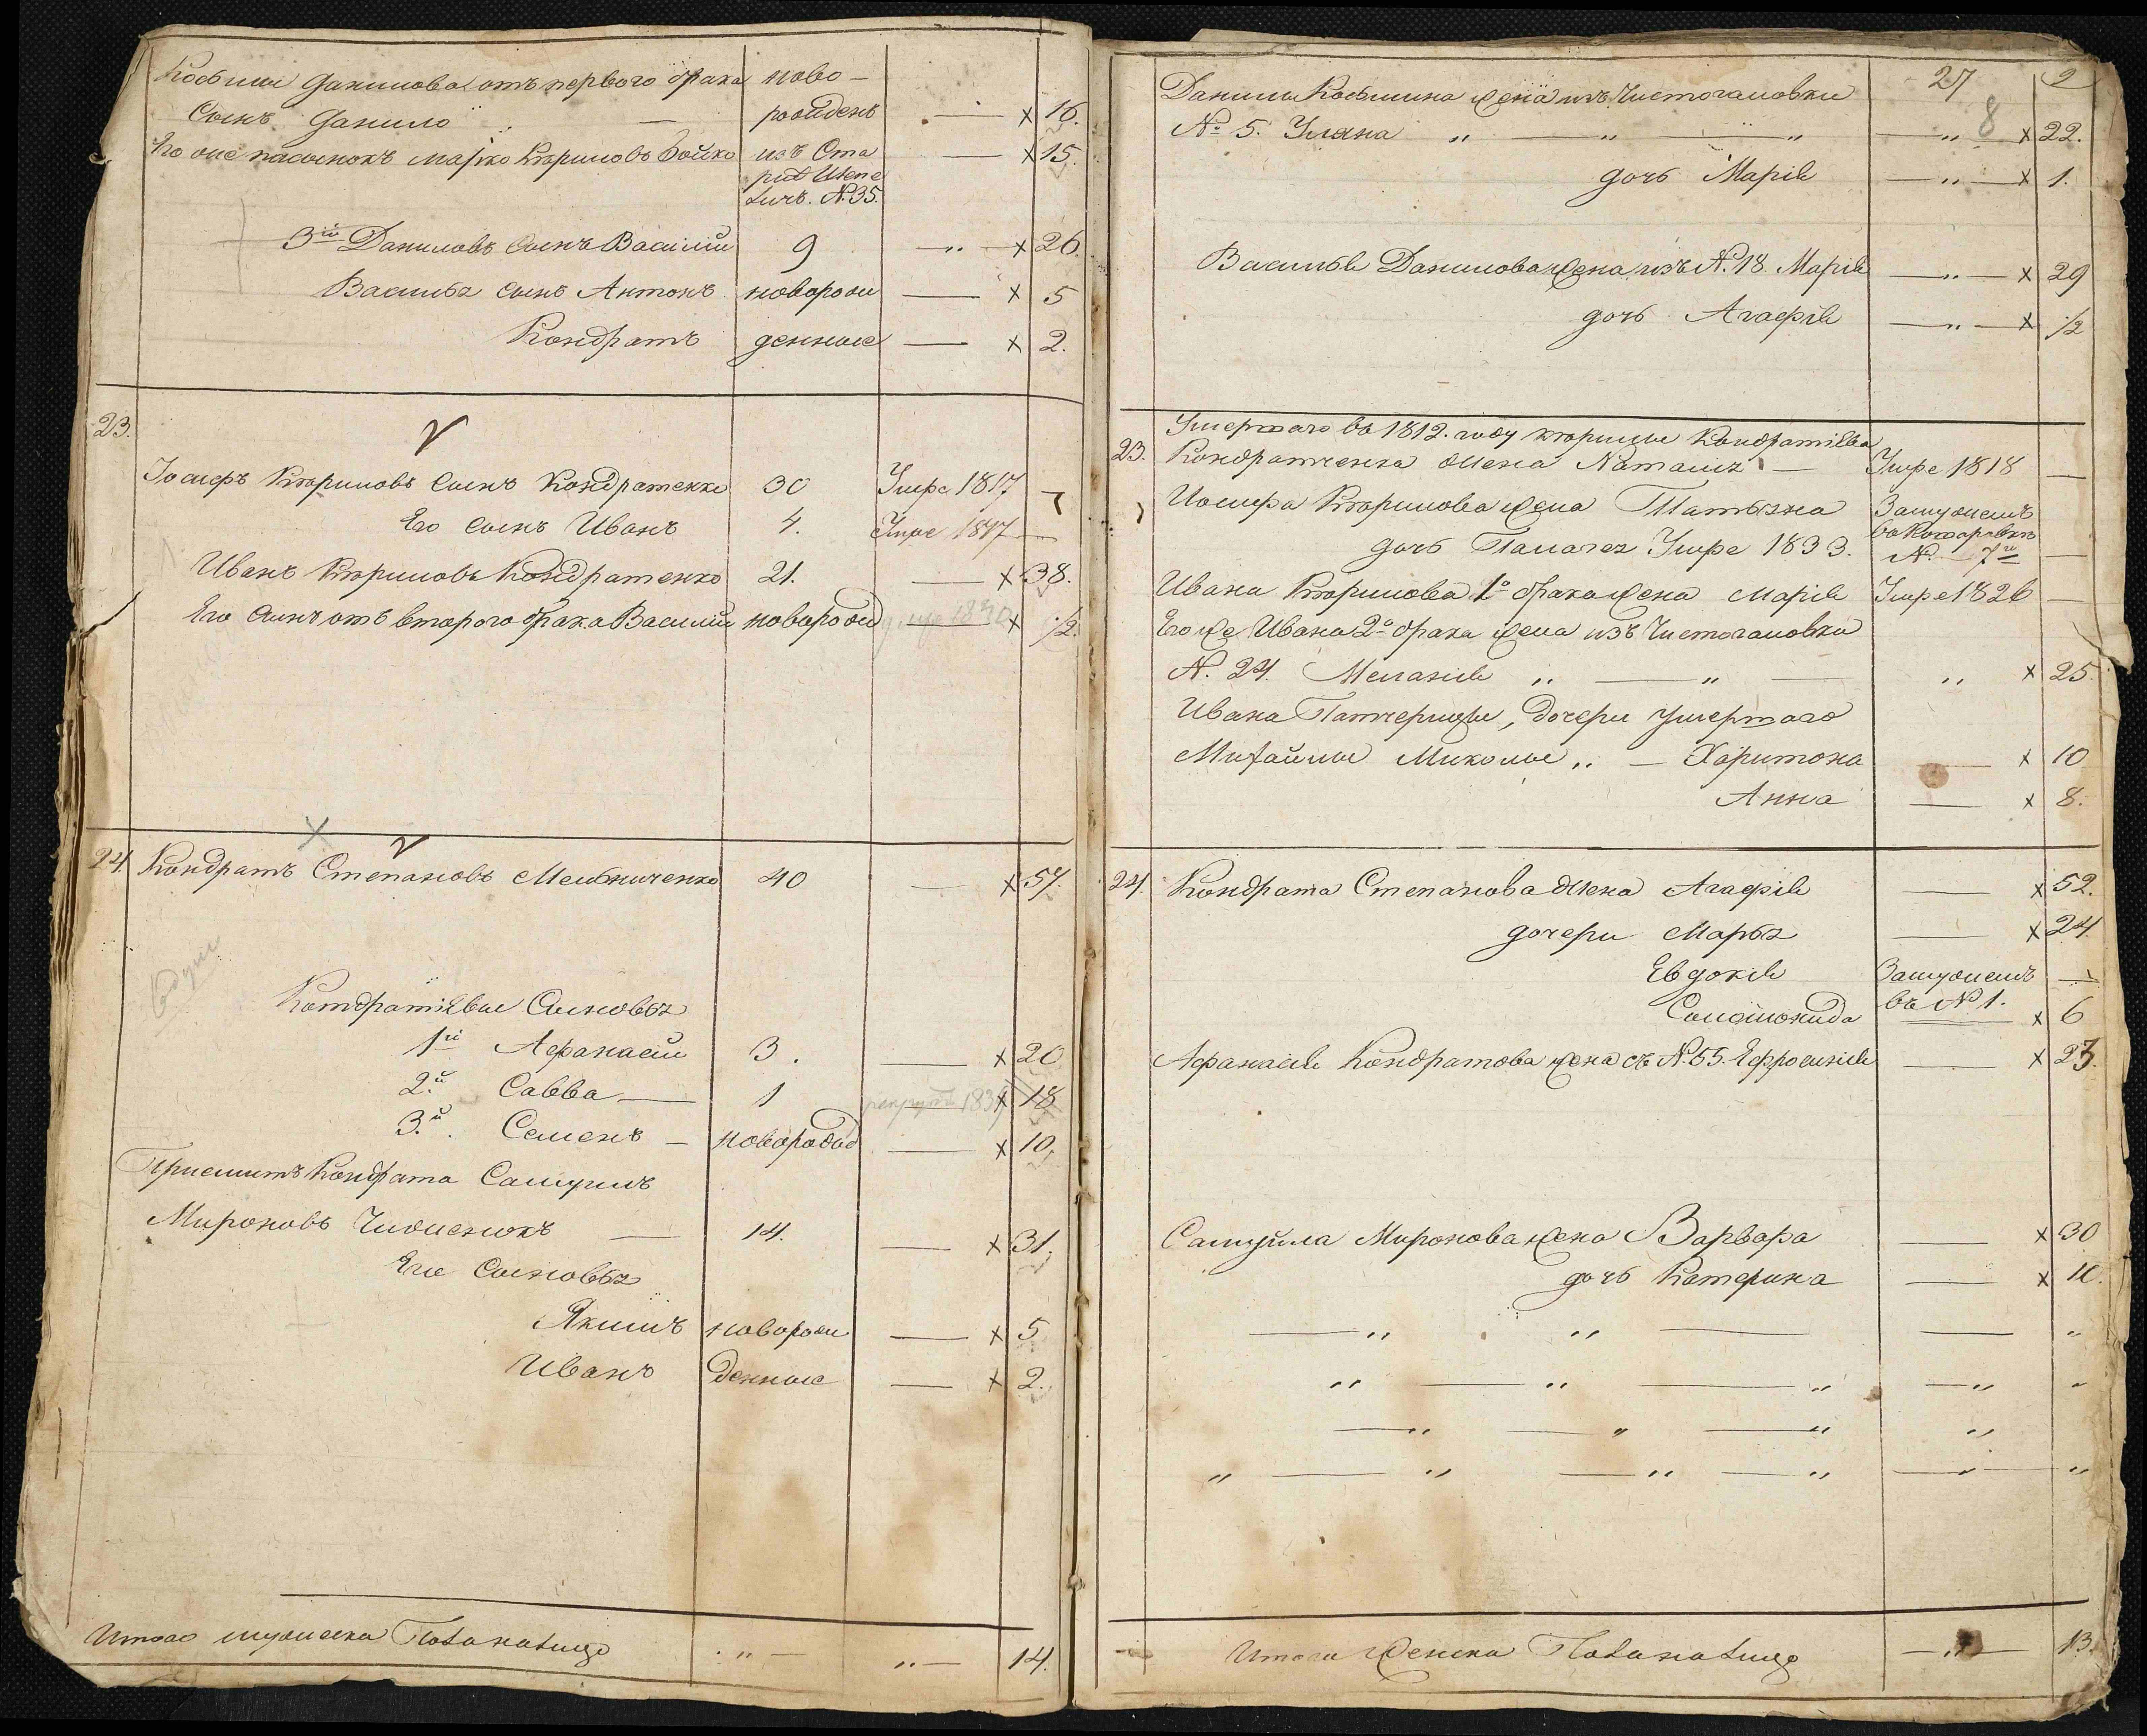 Косьмы Данилова отъ перваго брака ново-
Сынъ Данило — рожденъ — x 16.
Его же пасынокъ Марко Кириловъ Бойко изъ Ста — x 15.
№ 35.
3й Даниловъ сынъ Василій 9 — „ — x 26.
Василья сынъ Антонъ новорож — x 5
Кондратъ денные — x 2.
23.
Іосифъ Кириловъ сынъ Кондратенко 30 Умре 1817
Его сынъ Иванъ 4. Умре 1817 —
Иванъ Кириловъ Кондратенко 21. — x 38.
Его сынъ отъ второго брака Василій новорожд x ½.
24. Кондратъ Степановъ Мельниченко 40 — x 57.
Кондратіевы Сыновья
1й Афанасій 3. — x 20
2й Савва — 1 1839 x 18
3й. Семенъ — новорожд — x 10.
Приемышъ Кондрата Самуилъ
Мироновъ — 14. — x 31.
Его Сыновья
Якимъ новорож — x 5
Иванъ денные — x 2.
Итого мужеска Пола налицо „ — „ — 14.
27 2
8
Данилы Косьмина жена изъ Чистогаловки
№ 5. Уляна „ — „ — „ — „ — x 22.
дочь Марія — „ — x 1.
Василія Данилова жена изъ №. 18. Марія — „ — x 29
дочь Агафія — „ — x ½
Умершаго въ 1812. году Кирилы Кондратіева
23. Кондратченка жена Наталия — Умре 1818 —
Иосифа Кирилова жена Татьяна Замужемъ
дочь Палагея Умре 1833. №. 7й —
Ивана Кирилова 1о брака жена Марія Умре 1826 —
Его же Ивана 2о брака жена изъ Чистогаловки
№. 24. Меланія „ — „ — „ x 25.
Ивана Патчерицы, дочери умершаго
Михайлы Миколы „ — Харитона — x 10
Анна — x 8.
24. Кондрата Степанова жена Агафія — x 52.
дочери Марья — x 24.
Евдокія Замужемъ —
въ № 1.
Соломонида — x 6
Афанасія Кондратова жена съ №. 55. Ефросинія — x 23.
Самуйла Миронова жена Варвара — x 30
дочь Катерина — x 10.
— „ „ — — „
„ — „ — „ — „ „
— „ — „ — „ „
„ — „ — „ — „ — „ — „
Итого женска Пола налицо — „ — 13.